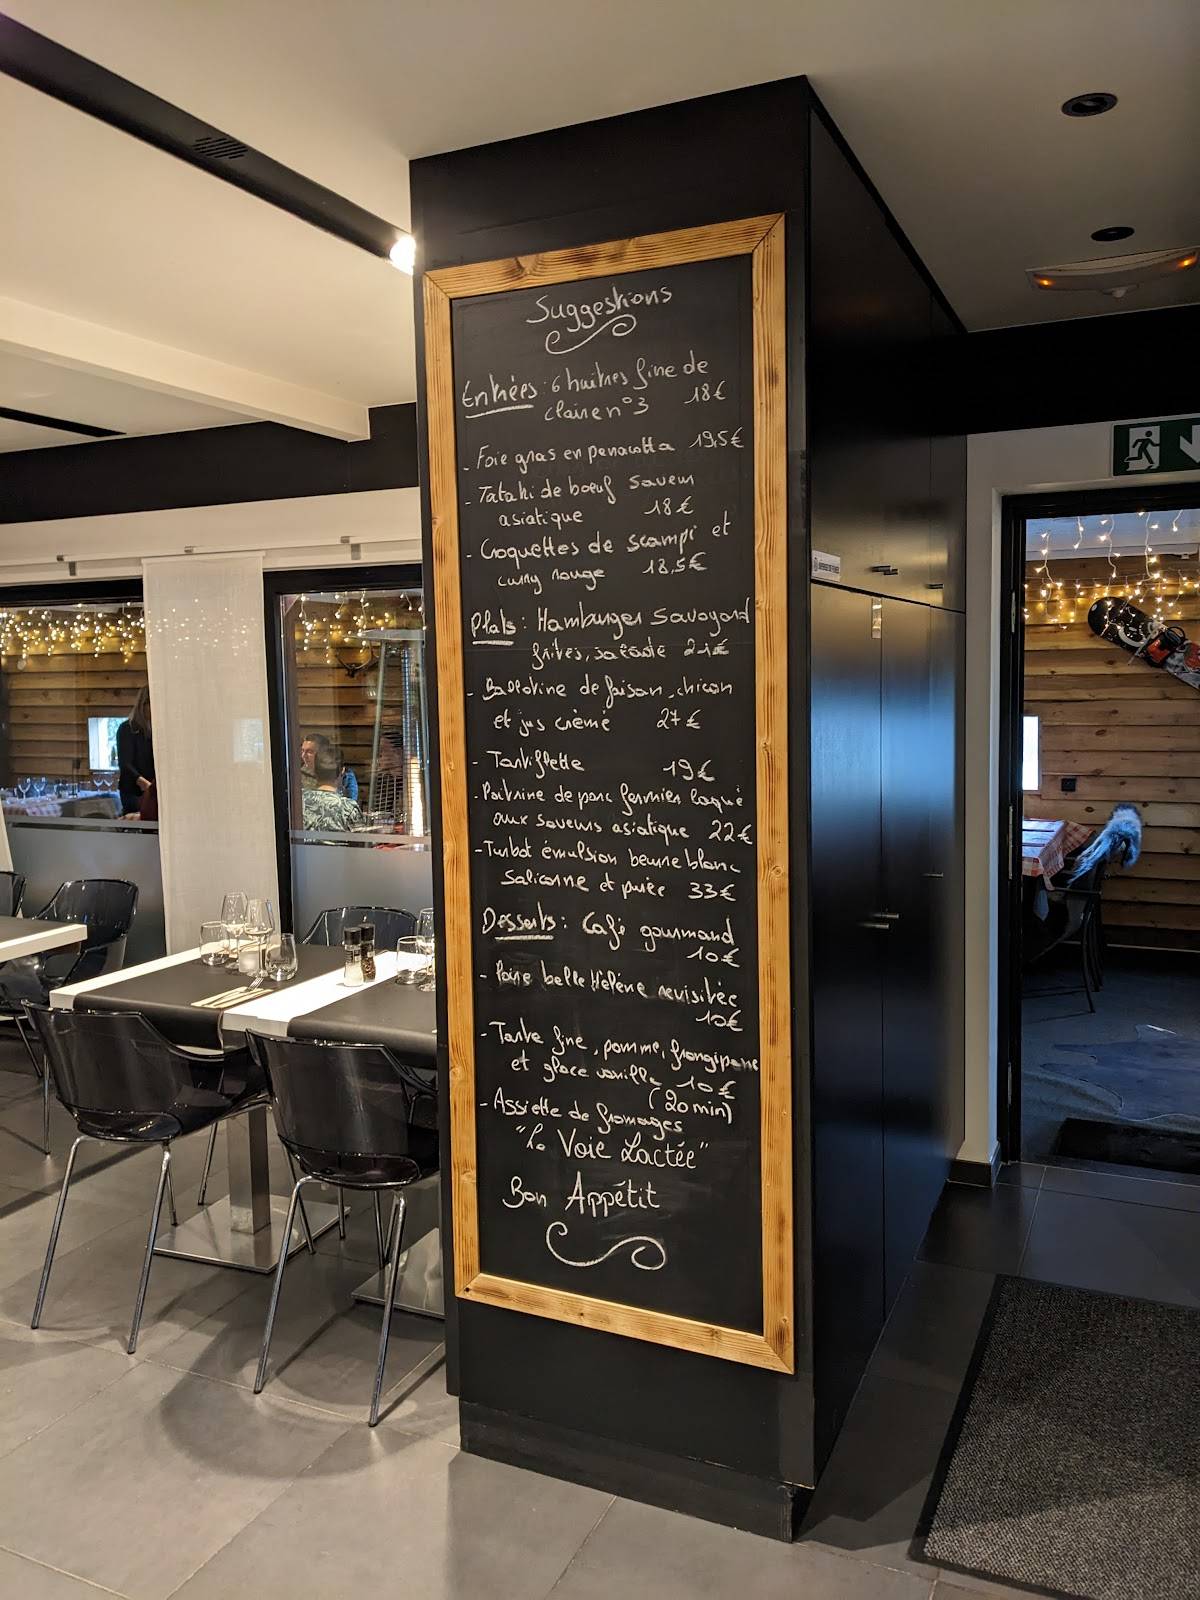 Suggestions
Entrées : 6 huîtres fine de
claire n°3 18€
- Foie gras en panacotta 19,5€
- Tataki de boeuf saveur
asiatique 18€
- Croquettes de scampi et
curry rouge 18,5€
Plats : Hamburger Savoyard
frites, salade 21€
- Ballotine de faisan, chicon
et jus crèmé 27€
- Tartiflette 19€
- Poitrine de porc fermier laqué
aux saveurs asiatique 22€
- Turbot émulsion beurre blanc
Salicorne et purée 33€
Desserts : Café gourmand
10€
- Poire belle Hélène revisitée
10€
- Tarte fine, pomme, frangipane
et glace vanille 10€
(20 min)
- Assiette de fromages
"La Voie Lactée"
Bon Appétit